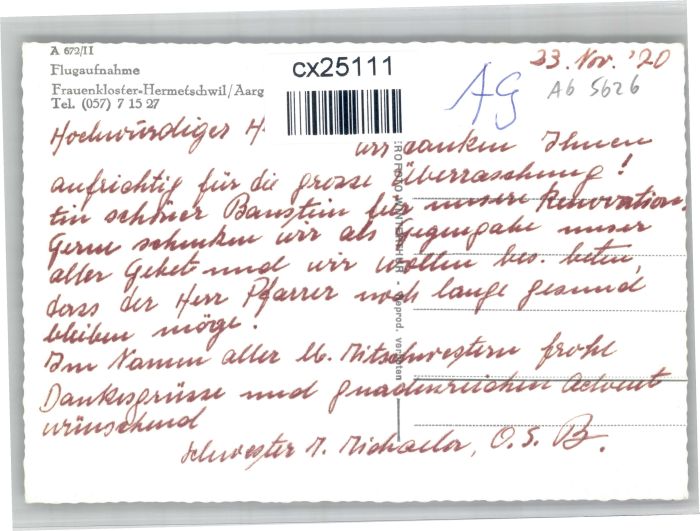 A 672/II
Flugaufnahme
Frauenkloster-Hermetschwil/Aarg
Tel. (057) 7 15 27
cx25111
AG
23. Nov. '70
AG 5626
Hochwürdiger H.
wir danken Ihnen
aufrichtig für die grosse Überraschung!
Ein schöner Baustein für unsere Renovation.
Gerne schenken wir als Gegengabe unser
aller Gebet und wir wollen bes. beten,
dass der Herr Pfarrer noch lange gesund
bleiben möge.
Im Namen aller lb. Mitschwestern frohe
Dankesgrüsse und gnadenreichen Advent
wünschend
Schwester M. Michaela, O.S.B.
Reprod. verboten